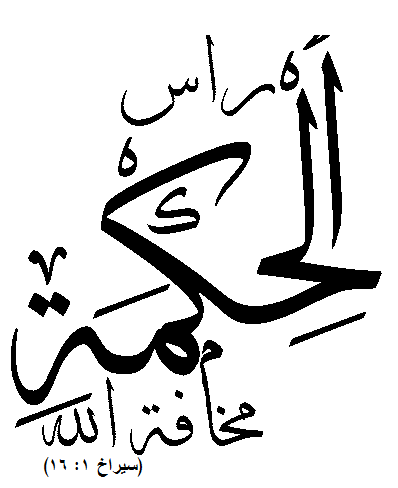 راس
الحِكمَةِ
مخافة الله
(سيراخ ١: ١٦)